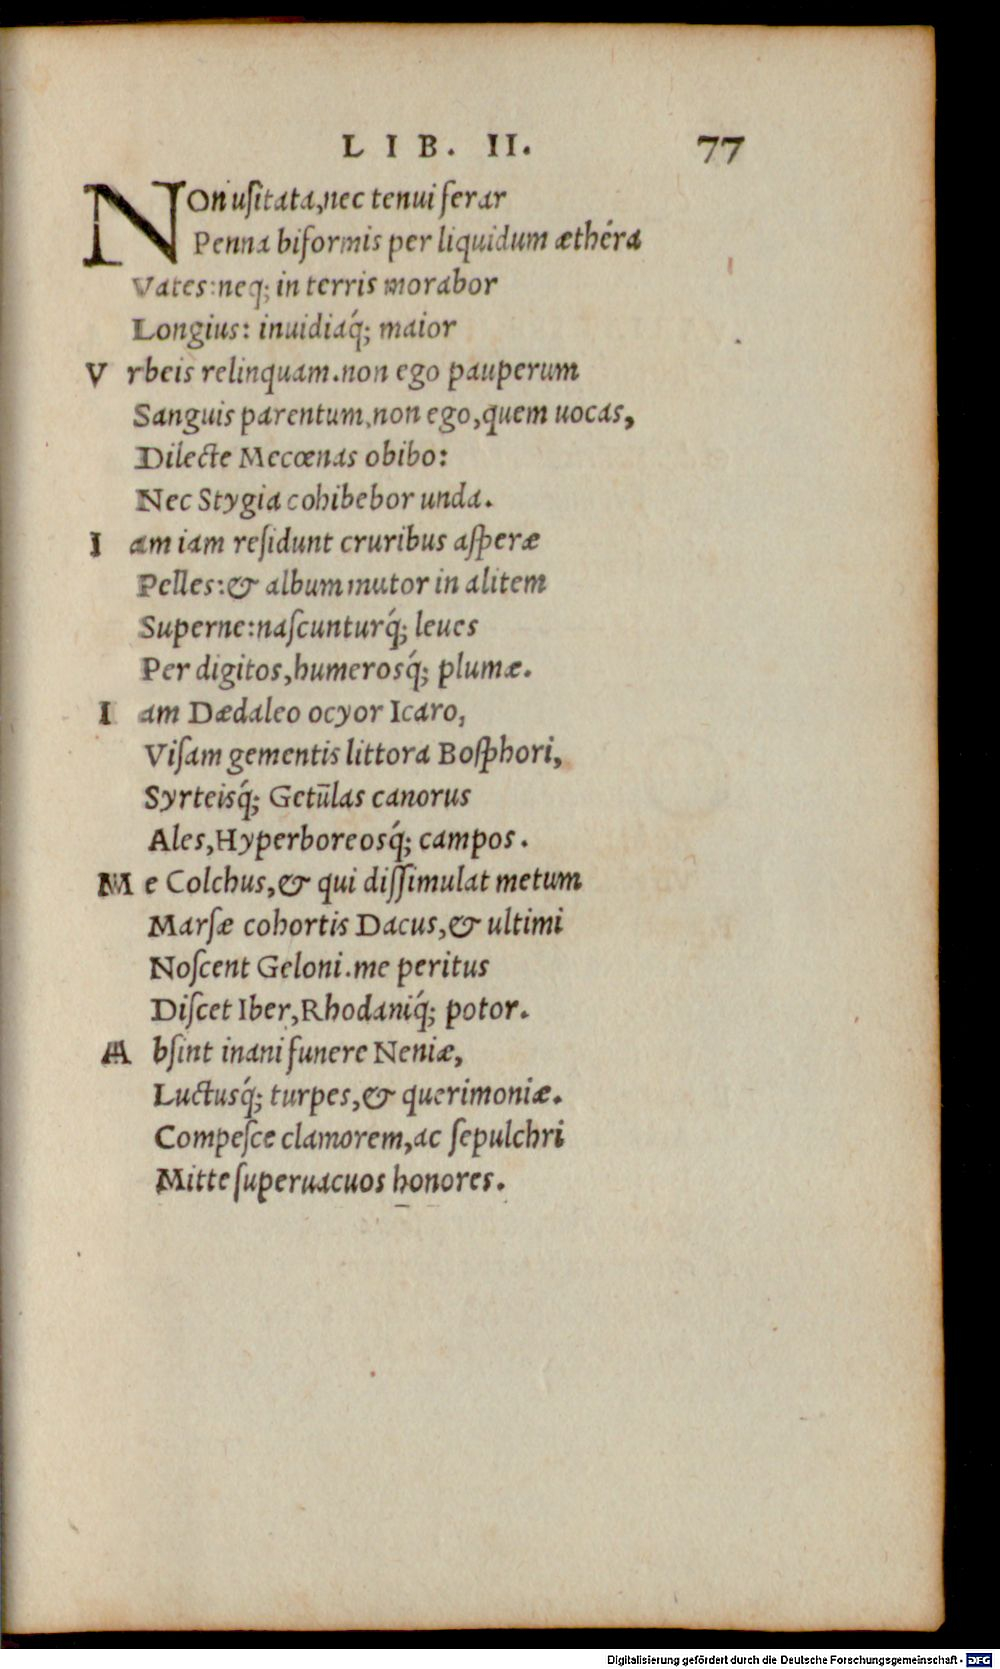 LIB. II. 77
NOn uſitata, nec tenui ferar
Penna biformis per liquidum æthéra
Vates: neq; in terris morabor
Longius: inuidiaq́; maior
V rbeis relinquam. non ego pauperum
Sanguis parentum, non ego, quem uocas,
Dilecte Mecœnas obibo:
Nec Stygia cohibebor unda.
I am iam reſidunt cruribus aſperæ
Pelles: & album mutor in alitem
Superne: naſcunturq́; leues
Per digitos, humerosq́; plumæ.
I am Dædaleo ocyor Icaro,
Viſam gementis littora Boſphori,
Syrteisq́; Getūlas canorus
Ales, Hyperboreosq́; campos.
M e Colchus, & qui diſſimulat metum
Marſæ cohortis Dacus, & ultimi
Noſcent Geloni. me peritus
Diſcet Iber, Rhodaniq́; potor.
A bſint inani funere Neniæ,
Luctusq́; turpes, & querimoniæ.
Compeſce clamorem, ac ſepulchri
Mitte ſuperuacuos honores.
Digitalisierung gefördert durch die Deutsche Forschungsgemeinschaft - DFG